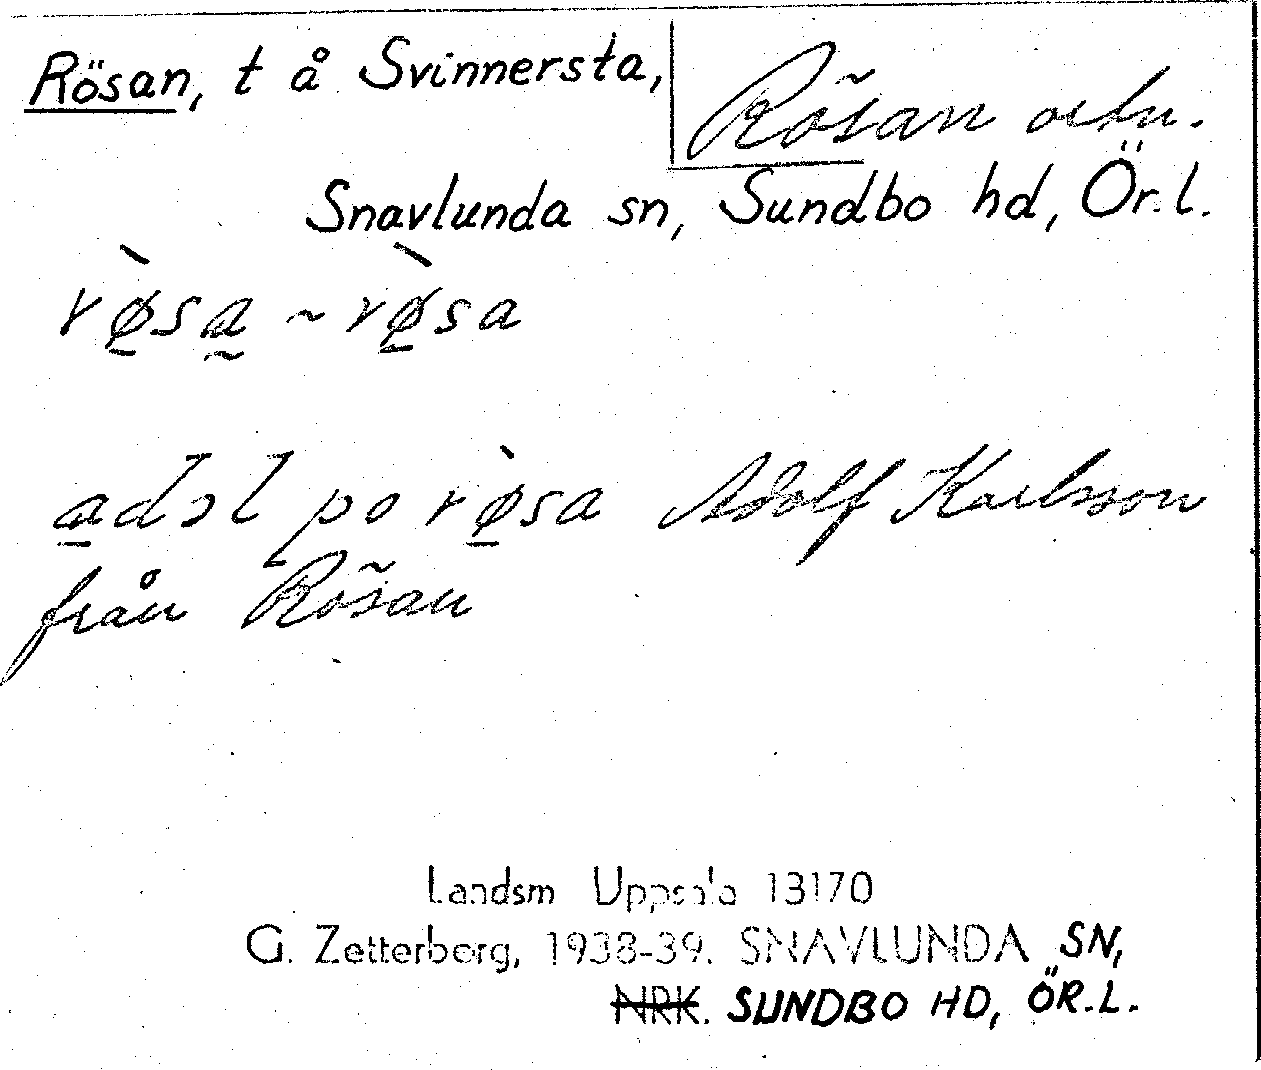 Rösan, t å Svinnersta,
Rösan
Snavlunda sn, Sundbo hd, Ör.l.
rø̀sa ~ rø̀sa
adɔl po rø̀sa Adolf Karlsson
från Rösan
Landsm Uppsala 13170
G. Zetterberg, 1938-39. SNAVLUNDA SN,
NRK. SUNDBO HD, ÖR.L.